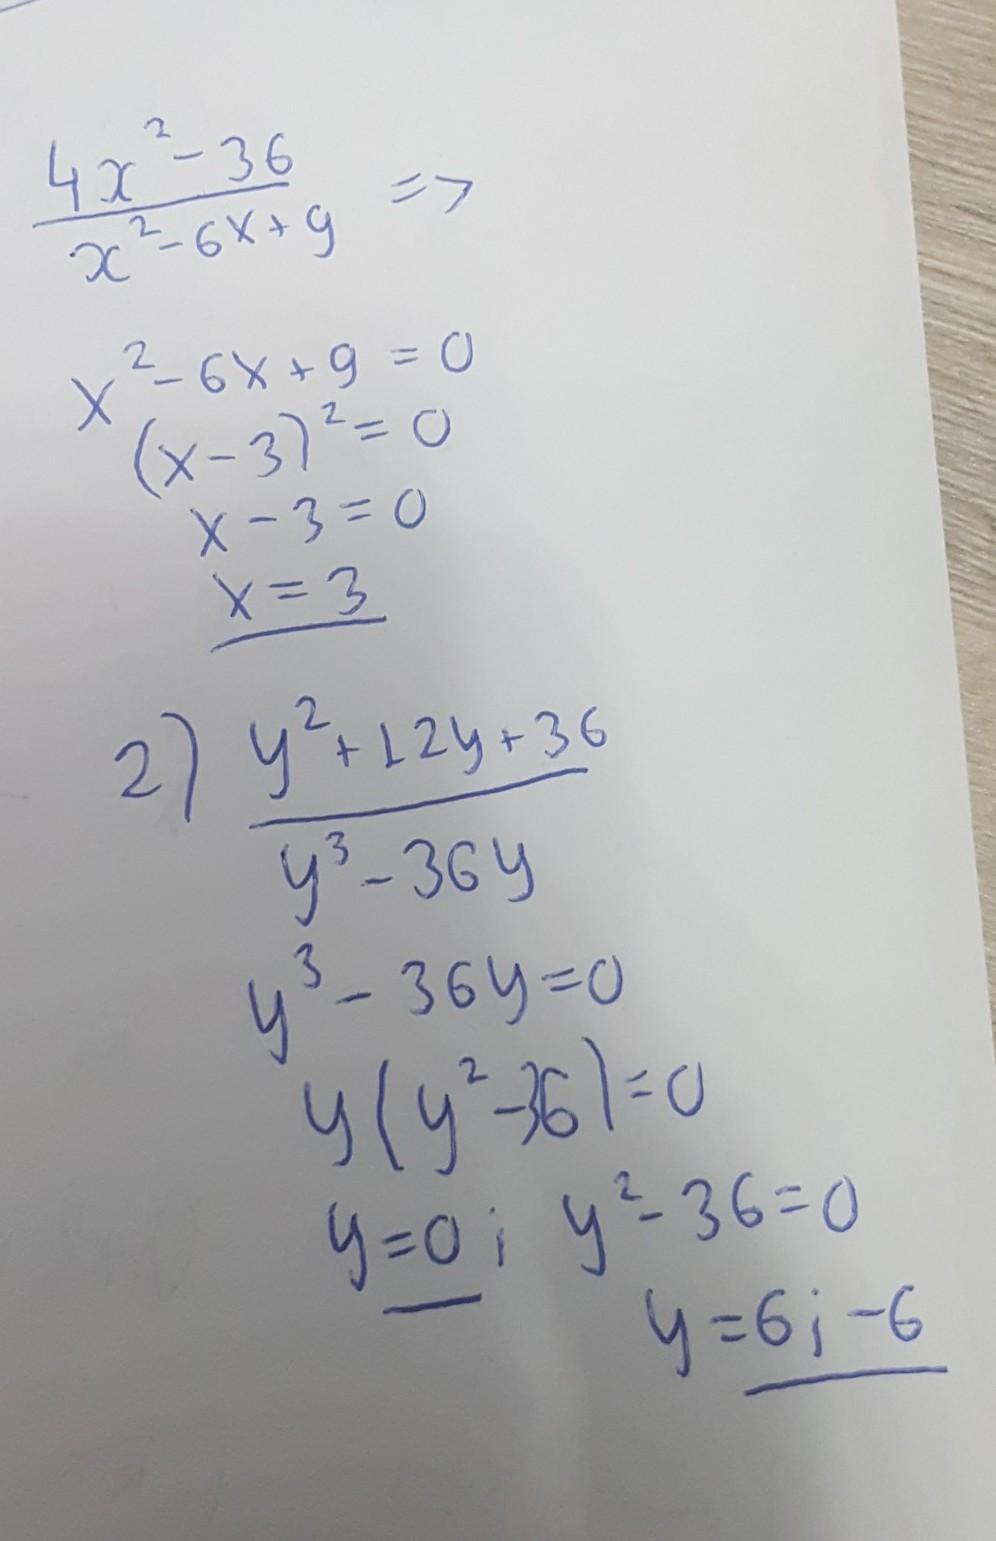 4x²-36
x²-6x+9 =>
x²-6x+9=0
(x-3)²=0
x-3=0
x=3
2) y²+12y+36
y³-36y
y³-36y=0
y(y²-36)=0
y=0; y²-36=0
y=6;-6